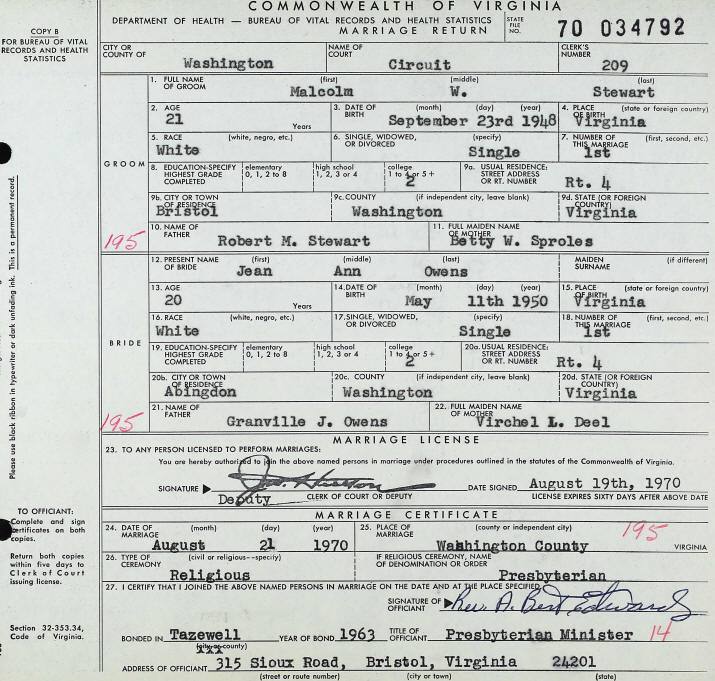 COMMONWEALTH OF VIRGINIA
DEPARTMENT OF HEALTH — BUREAU OF VITAL RECORDS AND HEALTH STATISTICS
MARRIAGE RETURN
STATE FILE NO. 70 034792
COPY B
FOR BUREAU OF VITAL RECORDS AND HEALTH STATISTICS
CITY OR COUNTY OF Washington NAME OF COURT Circuit CLERK'S NUMBER 209
GROOM
1. FULL NAME OF GROOM (first) Malcolm (middle) W. (last) Stewart
2. AGE 21 Years 3. DATE OF BIRTH (month) (day) (year) September 23rd 1948 4. PLACE OF BIRTH (state or foreign country) Virginia
5. RACE (white, negro, etc.) White 6. SINGLE, WIDOWED, OR DIVORCED (specify) Single 7. NUMBER OF THIS MARRIAGE (first, second, etc.) 1st
8. EDUCATION-SPECIFY HIGHEST GRADE COMPLETED elementary 0, 1, 2 to 8 high school 1, 2, 3 or 4 college 1 to 4 or 5 + 2 9a. USUAL RESIDENCE: STREET ADDRESS OR RT. NUMBER Rt. 4
9b. CITY OR TOWN OF RESIDENCE Bristol 9c. COUNTY (if independent city, leave blank) Washington 9d. STATE (OR FOREIGN COUNTRY) Virginia
195 10. NAME OF FATHER Robert M. Stewart 11. FULL MAIDEN NAME OF MOTHER Betty W. Sproles
BRIDE
12. PRESENT NAME OF BRIDE (first) Jean (middle) Ann (last) Owens MAIDEN SURNAME (if different)
13. AGE 20 Years 14. DATE OF BIRTH (month) (day) (year) May 11th 1950 15. PLACE OF BIRTH (state or foreign country) Virginia
16. RACE (white, negro, etc.) White 17. SINGLE, WIDOWED, OR DIVORCED (specify) Single 18. NUMBER OF THIS MARRIAGE (first, second, etc.) 1st
19. EDUCATION-SPECIFY HIGHEST GRADE COMPLETED elementary 0, 1, 2 to 8 high school 1, 2, 3 or 4 college 1 to 4 or 5 + 2 20a. USUAL RESIDENCE: STREET ADDRESS OR RT. NUMBER Rt. 4
20b. CITY OR TOWN OF RESIDENCE Abingdon 20c. COUNTY (if independent city, leave blank) Washington 20d. STATE (OR FOREIGN COUNTRY) Virginia
195 21. NAME OF FATHER Granville J. Owens 22. FULL MAIDEN NAME OF MOTHER Virchel L. Deel
MARRIAGE LICENSE
23. TO ANY PERSON LICENSED TO PERFORM MARRIAGES:
You are hereby authorized to join the above named persons in marriage under procedures outlined in the statutes of the Commonwealth of Virginia.
SIGNATURE DATE SIGNED August 19th, 1970
Deputy CLERK OF COURT OR DEPUTY LICENSE EXPIRES SIXTY DAYS AFTER ABOVE DATE
MARRIAGE CERTIFICATE
24. DATE OF MARRIAGE (month) (day) (year) August 21 1970 25. PLACE OF MARRIAGE (county or independent city) Washington County 195 VIRGINIA
26. TYPE OF CEREMONY (civil or religious--specify) Religious IF RELIGIOUS CEREMONY, NAME OF DENOMINATION OR ORDER Presbyterian
27. I CERTIFY THAT I JOINED THE ABOVE NAMED PERSONS IN MARRIAGE ON THE DATE AND AT THE PLACE SPECIFIED.
SIGNATURE OF OFFICIANT Rev. A. Bert Edwards
BONDED IN Tazewell (city or county) YEAR OF BOND 1963 TITLE OF OFFICIANT Presbyterian Minister 14
ADDRESS OF OFFICIANT 315 Sioux Road, Bristol, Virginia 24201
(street or route number) (city or town) (state)
Please use black ribbon in typewriter or dark unfading ink. This is a permanent record.
TO OFFICIANT:
Complete and sign certificates on both copies.
Return both copies within five days to Clerk of Court issuing license.
Section 32-353.34, Code of Virginia.